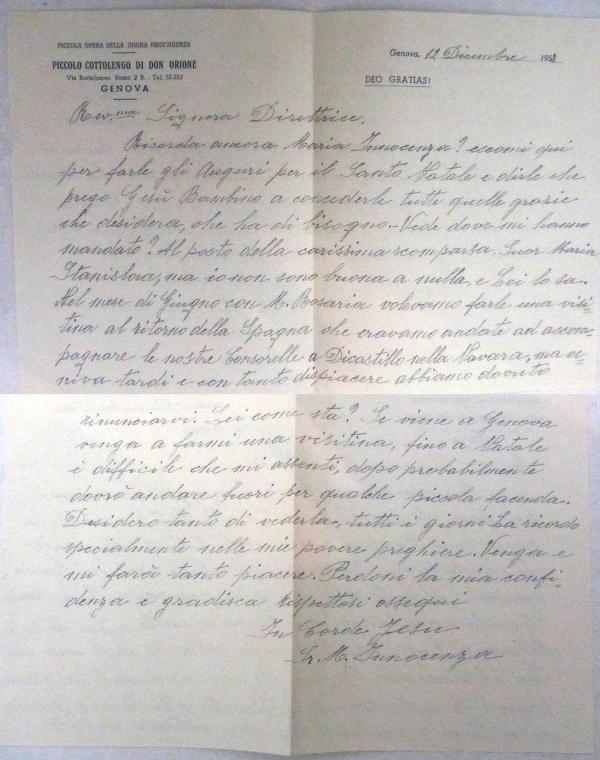 PICCOLA OPERA DELLA DIVINA PROVVIDENZA
PICCOLO COTTOLENGO DI DON ORIONE
Via Bartolomeo Bosco 2 B. - Tel. 55.253
GENOVA
Genova, 12 Dicembre 1951
DEO GRATIAS!
Rev.ma Signora Direttrice,
Ricorda ancora Maria Innocenza? eccomi qui
per farle gli Auguri per il Santo Natale e dirle che
prego Gesù Bambino a concederle tutte quelle grazie
che desidera, che ha di bisogno. - Vede dove mi hanno
mandato? Al posto della carissima scomparsa Suor Maria
Stanislava, ma io non sono buona a nulla, e Lei lo sa.
Nel mese di Giugno con M. Rosaria volevamo farle una visi-
tina al ritorno della Spagna che eravamo andate ad accom-
pagnare le nostre Consorelle a Dicastillo nella Navara, ma ve-
niva tardi e con tanto dispiacere abbiamo dovuto
rinunciarvi. Lei come sta? Se viene a Genova
venga a farmi una visitina, fino a Natale
è difficile che mi assenti, dopo probabilmente
dovrò andare fuori per qualche piccola facenda.
Desidero tanto di vederla, tutti i giorni La ricordo
specialmente nelle mie povere preghiere. Venga e
mi farà tanto piacere. Perdoni la mia confi-
denza e gradisca rispettosi ossequi
In Corde Jesu
Sr. M. Innocenza